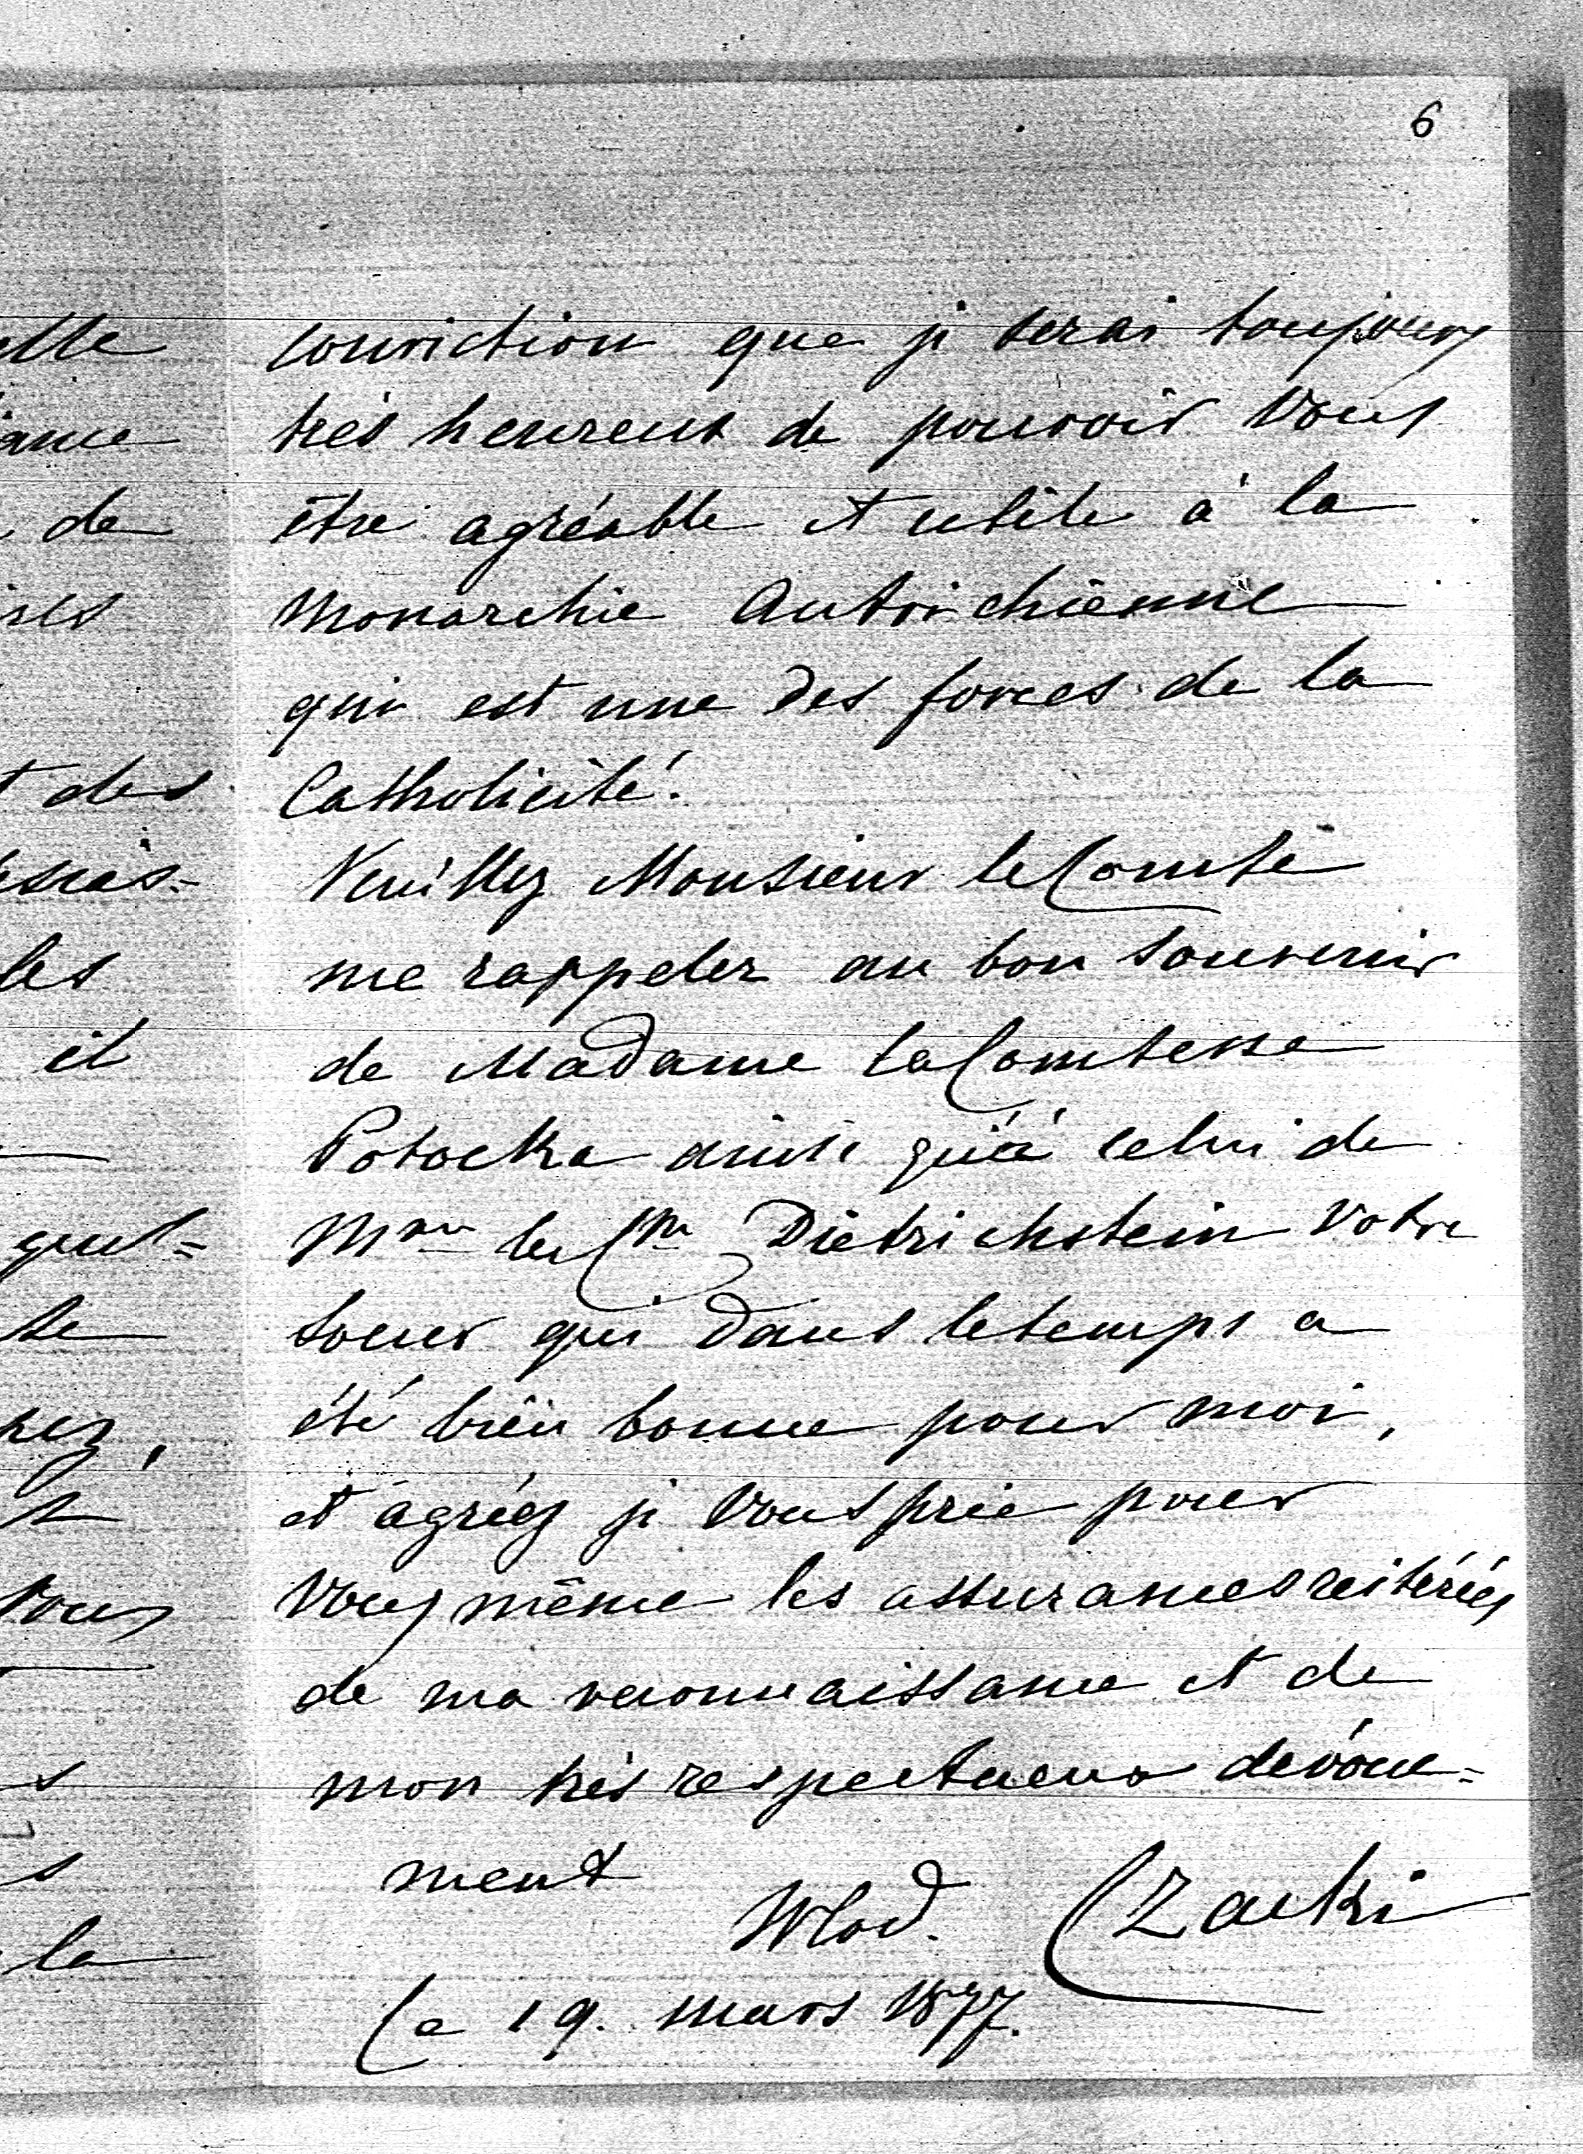 6
conviction que je serai toujours
très heureux de pouvoir Vous
être agréable et utile à la
Monarchie Autrichienne
qui est une des forces de la
Catholicité.
Veuillez Monsieur le Comte
me rappeler au bon souvenir
de Madame la Comtesse
Potocka ainsi qu'à celui de
Mme la Csse Dietrichstein Votre
Soeur qui dans le temps a
été bien bonne pour moi,
et agréez je Vous prie pour
Vous même les assurances reitérées
de ma reconnaissance et de
mon très respectueux dévoue=
ment
Wlod. Czacki
Le 19. mars 1877.
elle
de
des
les
il
quel=
se
Vous
la